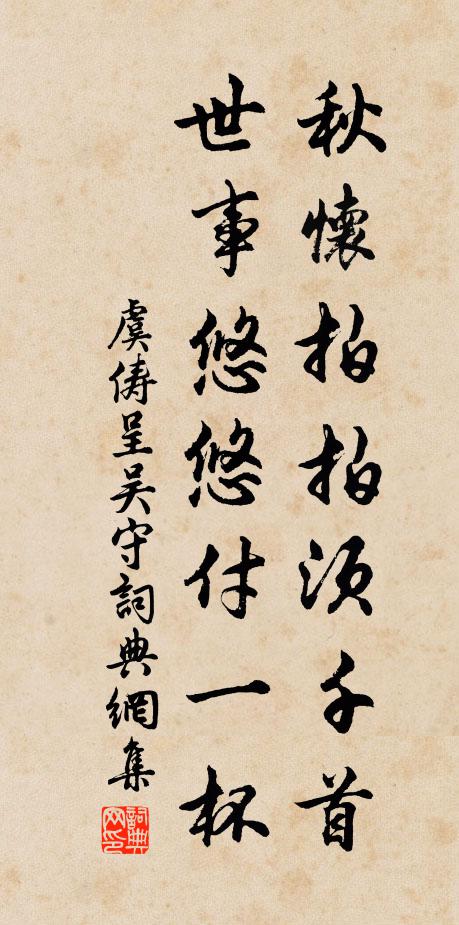 秋懷拍拍須千首
世事悠悠付一杯
虞儔呈吳守詞典網集
詞典网印